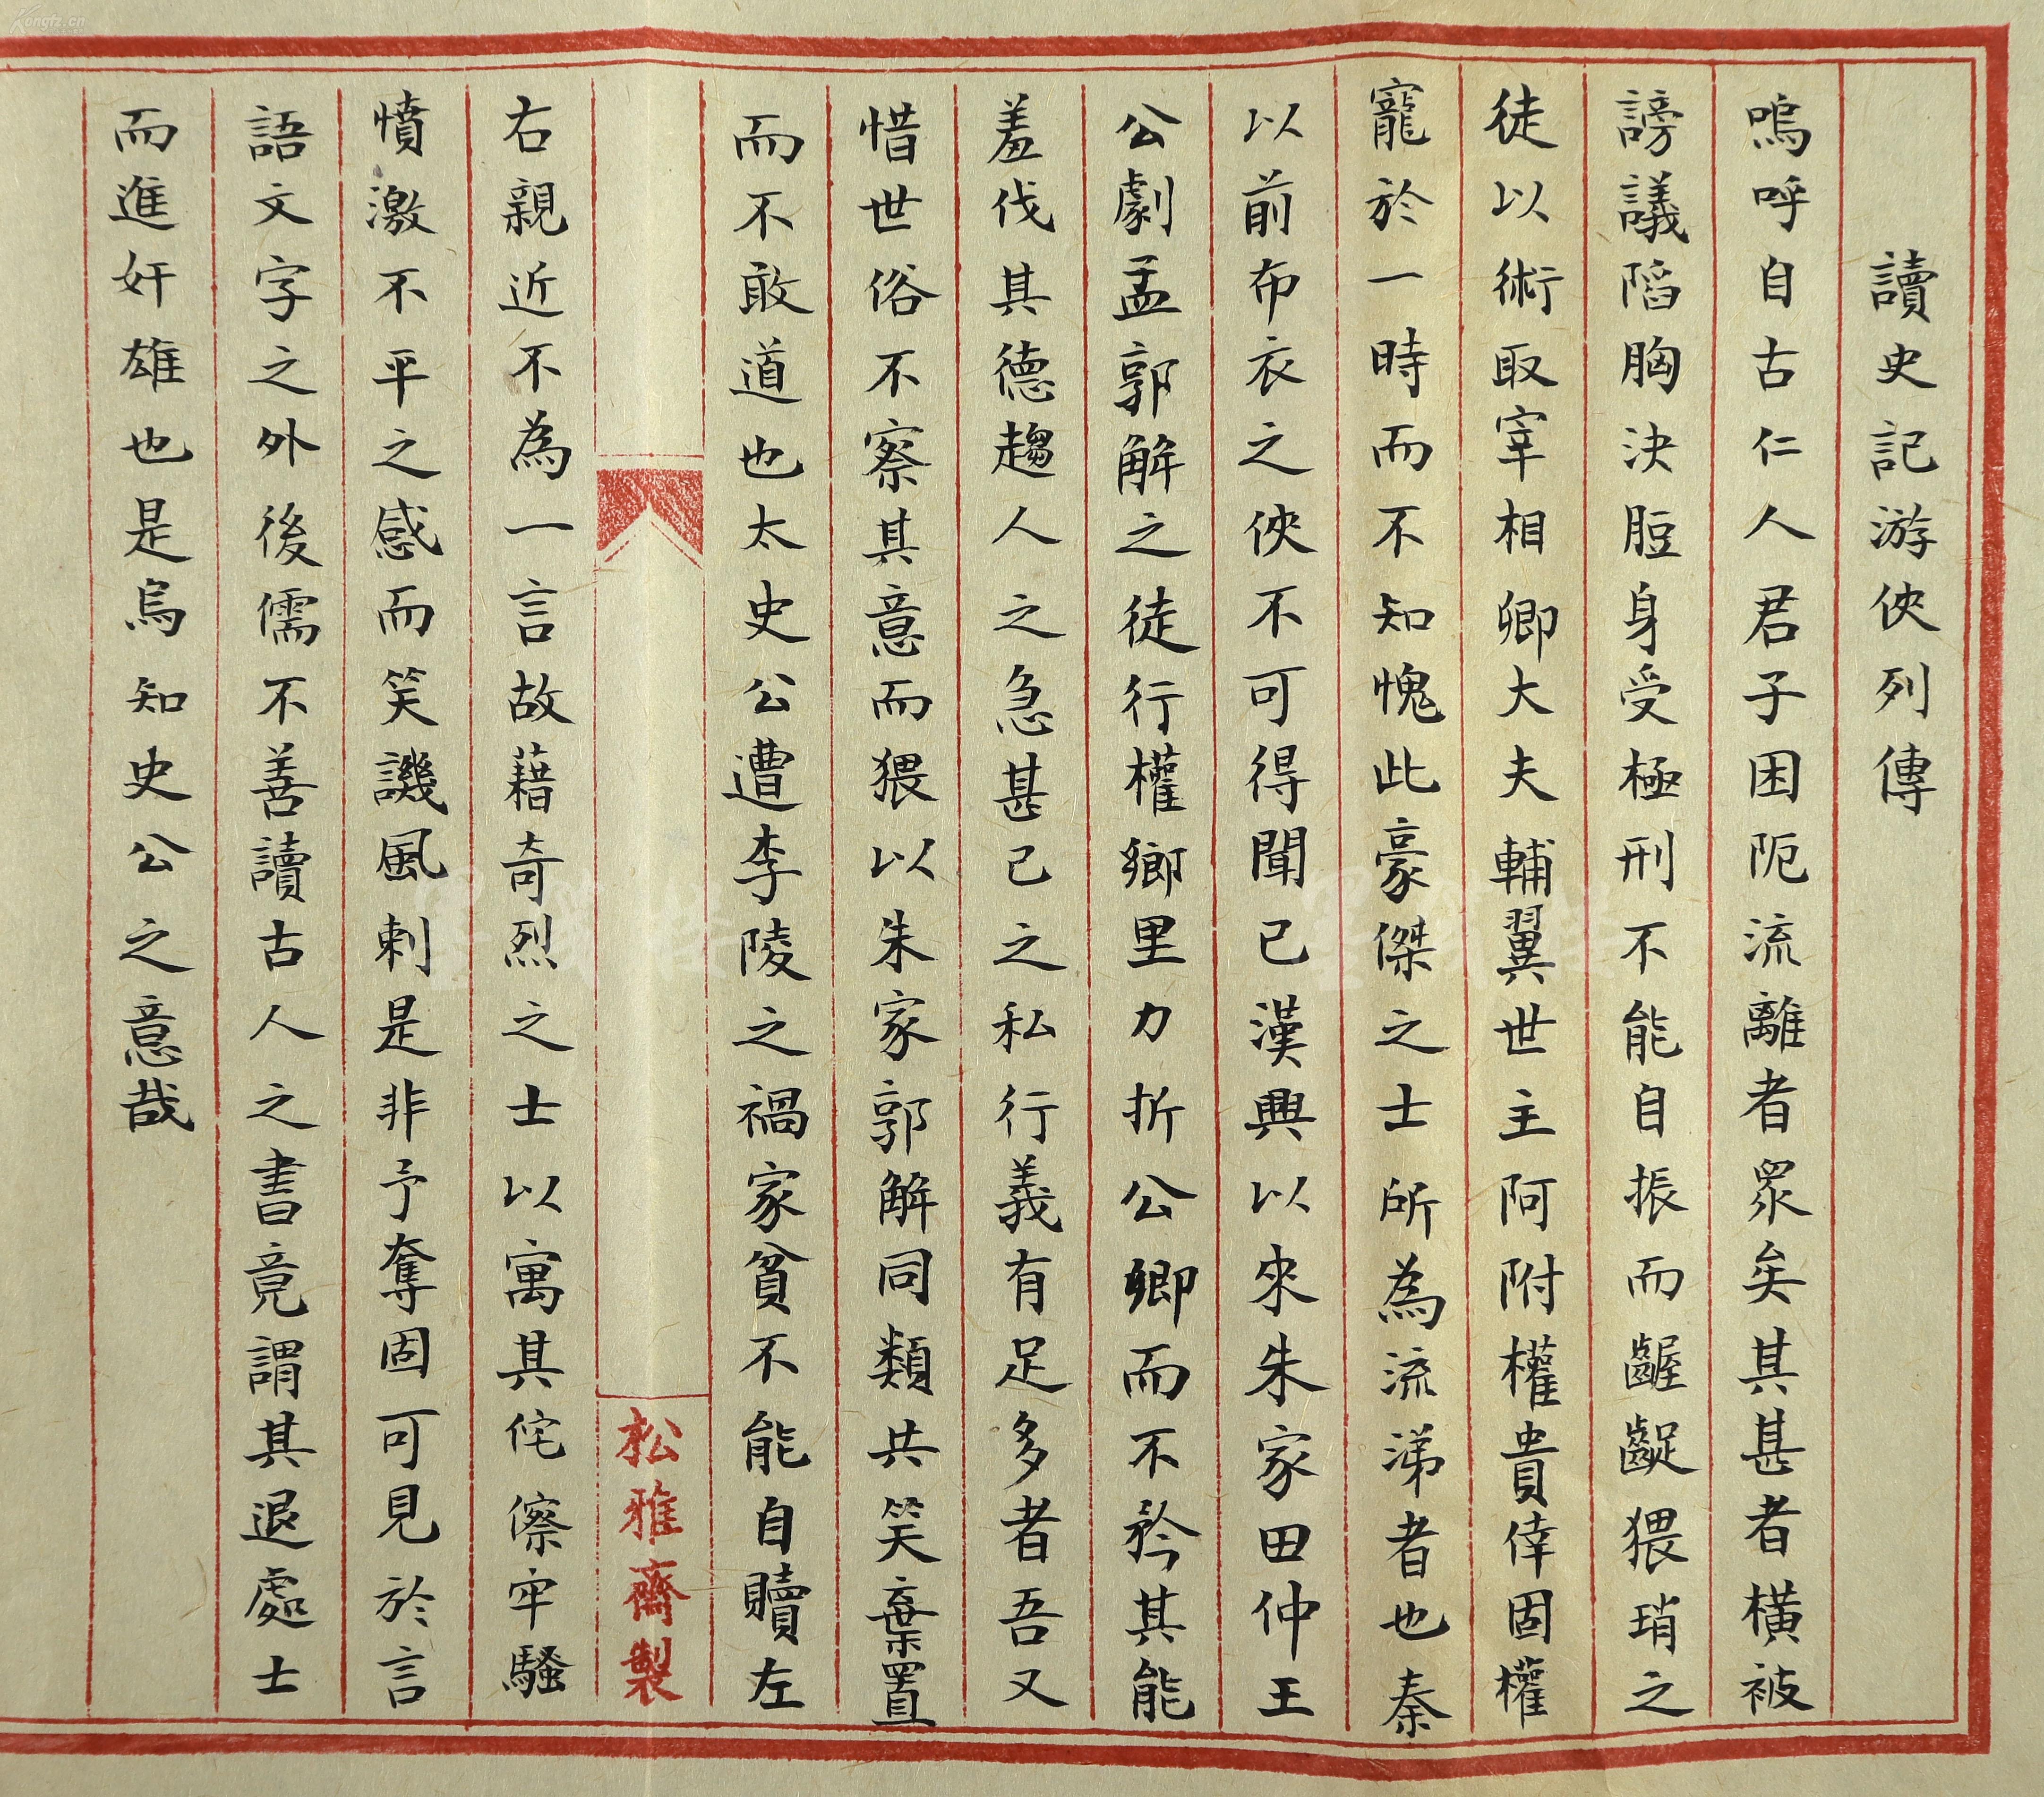 讀史記游俠列傳
嗚呼自古仁人君子困阨流離者眾矣其甚者橫被
謗議陷胸決脰身受極刑不能自振而齷齪猥瑣之
徒以術取宰相卿大夫輔翼世主阿附權貴倖固權
寵於一時而不知愧此豪傑之士所為流涕者也秦
以前布衣之俠不可得聞已漢興以來朱家田仲王
公劇孟郭解之徒行權鄉里力折公卿而不矜其能
羞伐其德趨人之急甚己之私行義有足多者吾又
惜世俗不察其意而猥以朱家郭解同類共笑棄置
而不敢道也太史公遭李陵之禍家貧不能自贖左
松雅齋製
右親近不為一言故藉奇烈之士以寓其侘傺牢騷
憤激不平之感而笑譏風刺是非予奪固可見於言
語文字之外後儒不善讀古人之書竟謂其退處士
而進奸雄也是烏知史公之意哉
Kongfz.cn